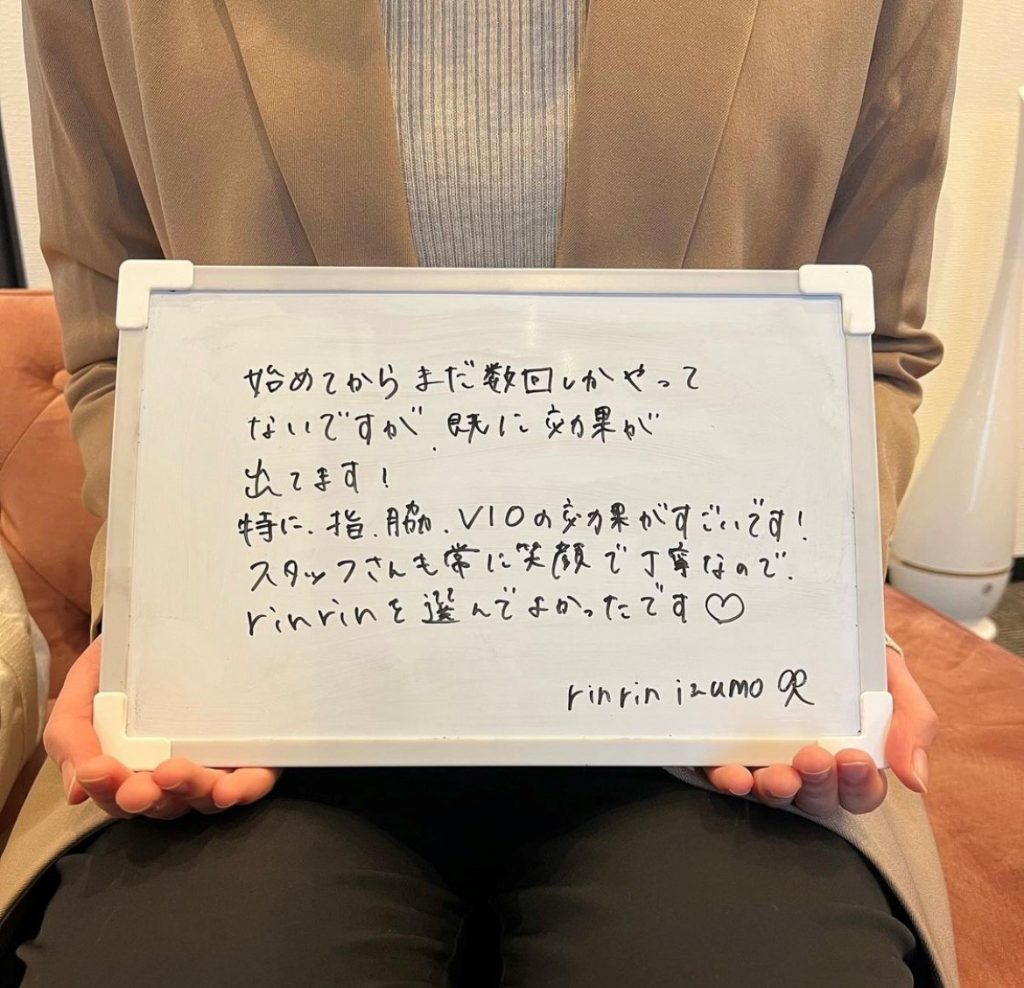 始めてからまだ数回しかやって
ないですが、既に効果が
出てます!
特に、指、脇、VIOの効果がすごいです!
スタッフさんも常に笑顔で丁寧なので、
rinrinを選んでよかったです♡
rinrin izumo